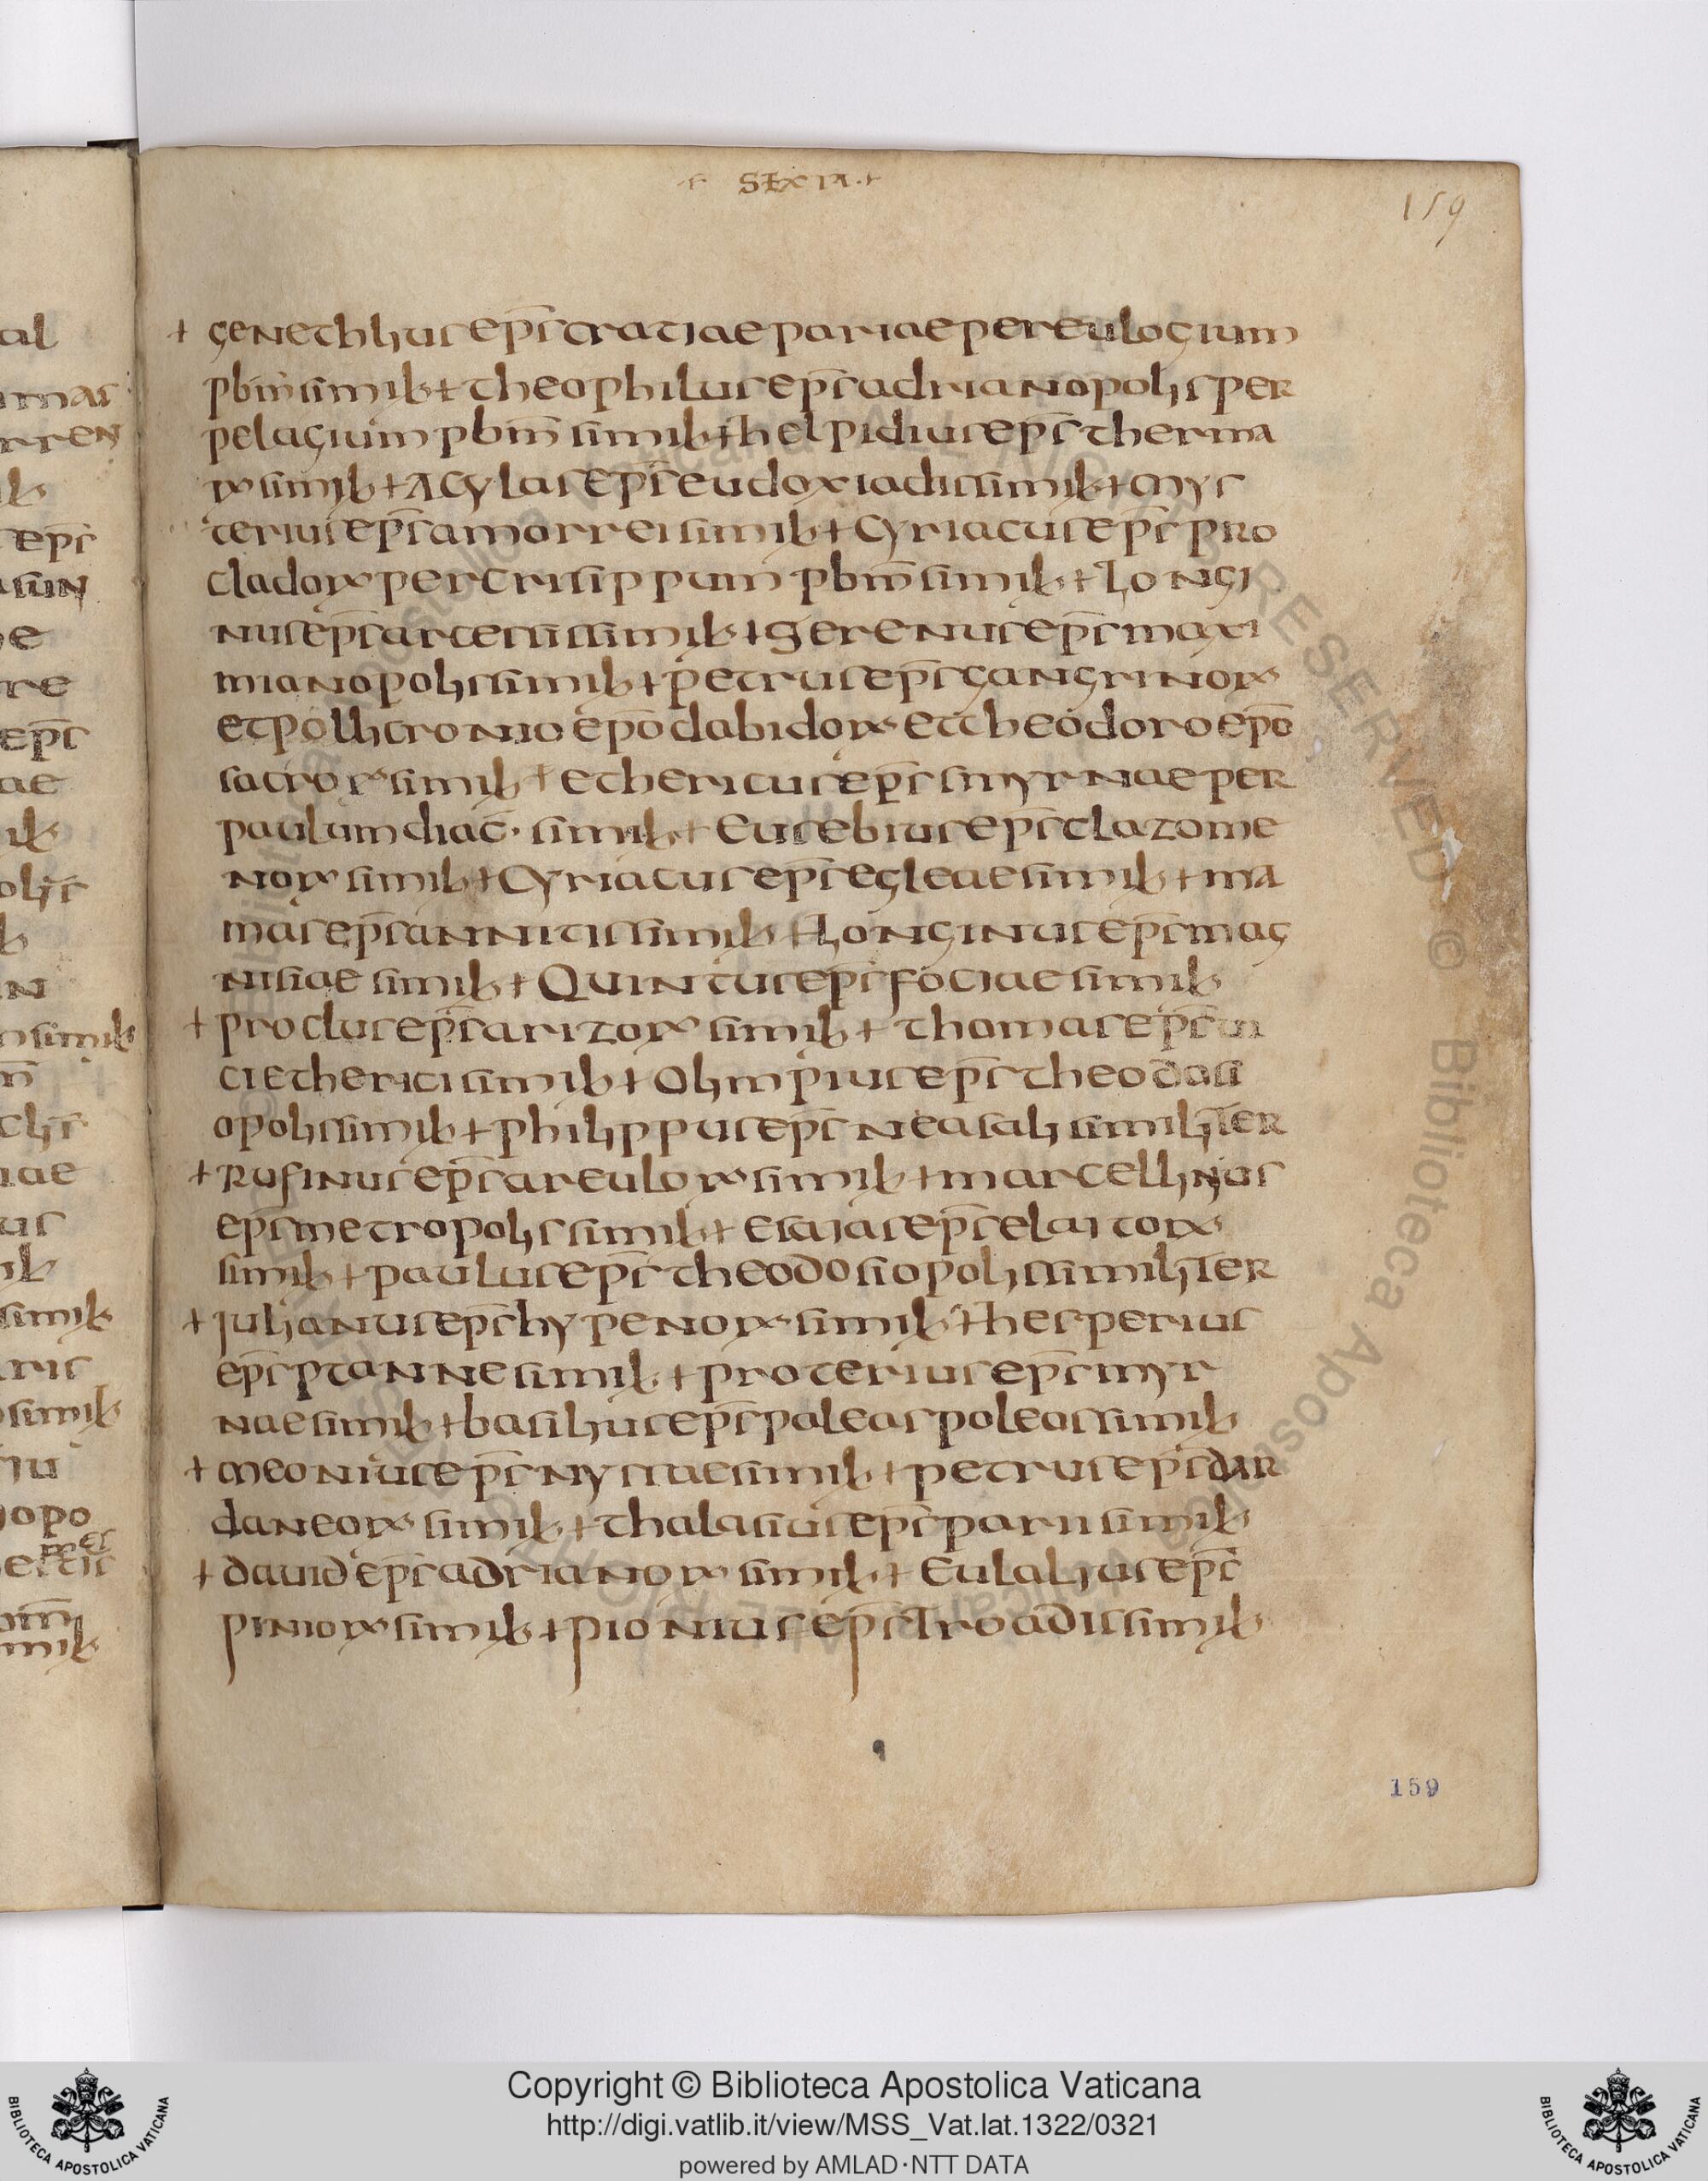 SEXTA
159
+ genethlius ep̄s cratiae pariae per eulogium
pbm̄ simil + theophilus ep̄s adrianopolis per
pelagium pbm̄ simil + helpidius ep̄s therma
rꝝ simil + Acylas ep̄s eudoxiadis simil + mys
terius ep̄s amorrei simil + Cyriacus ep̄s pro
cladoꝝ per crisippum pbm̄ simil + Longi
nus ep̄s arcessis simil + Serenus ep̄s maxi
mianopolis simil + petrus ep̄s gangrinoꝝ
et pollicronio ep̄o dabidoꝝ et theodoro ep̄o
sacroꝝ simil + ethericus ep̄s smyrnae per
paulum diac̄· simil + Eusebius ep̄s clazome
noꝝ simil + Cyriacus ep̄s egleae simil + ma
mas ep̄s annitis simil + Longinus ep̄s mag
nisiae simil + Quintus ep̄s fociae simil
+ proclus ep̄s arizoꝝ simil + thomas ep̄s
ci etherici simil + Olimpius ep̄s theodosi
opolis simil + philippus ep̄s neasali similiter
+ Rufinus ep̄s areuloꝝ simil + marcellinus
ep̄s metropolis simil + Esaias ep̄s elaitoꝝ
simil + paulus ep̄s theodosiopolis similiter
+ julianus ep̄s hypenoꝝ simil + hesperius
ep̄s ptanne simil + proterius ep̄s myr
nae simil + basilius ep̄s paleaspoleos simil
+ meonius ep̄s nyssae simil + petrus ep̄s dar
daneoꝝ simil + thalasius ep̄s parii simil
+ david ep̄s adrianoꝝ simil + Eulalius ep̄s
pinioꝝ simil + pionius ep̄s Troadis simil
159
Copyright © Biblioteca Apostolica Vaticana
http://digi.vatlib.it/view/MSS_Vat.lat.1322/0321
powered by AMLAD·NTT DATA
BIBLIOTECA APOSTOLICA VATICANA
BIBLIOTECA APOSTOLICA VATICANA